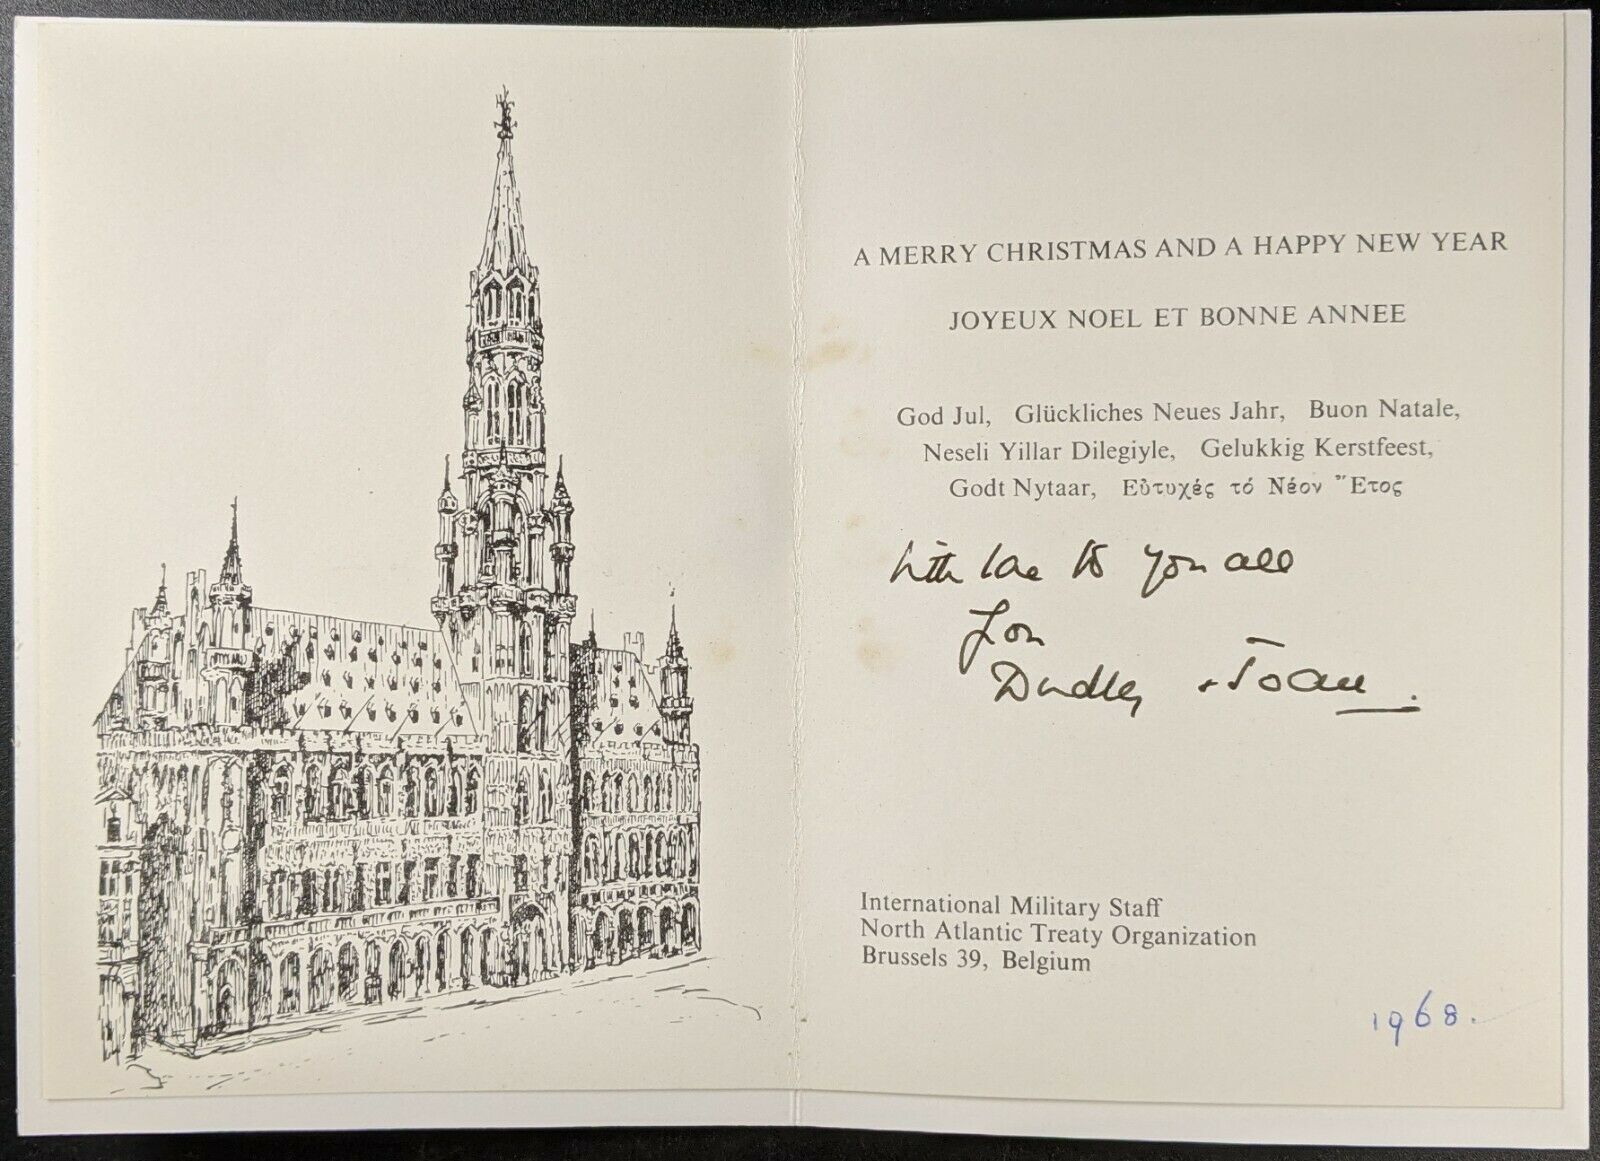 A MERRY CHRISTMAS AND A HAPPY NEW YEAR
JOYEUX NOEL ET BONNE ANNEE
God Jul, Glückliches Neues Jahr, Buon Natale,
Neseli Yillar Dilegiyle, Gelukkig Kerstfeest,
Godt Nytaar, Εὐτυχές τό Νέον Ἔτος
With love to you all
from
Dudley + Joan.
International Military Staff
North Atlantic Treaty Organization
Brussels 39, Belgium
1968.